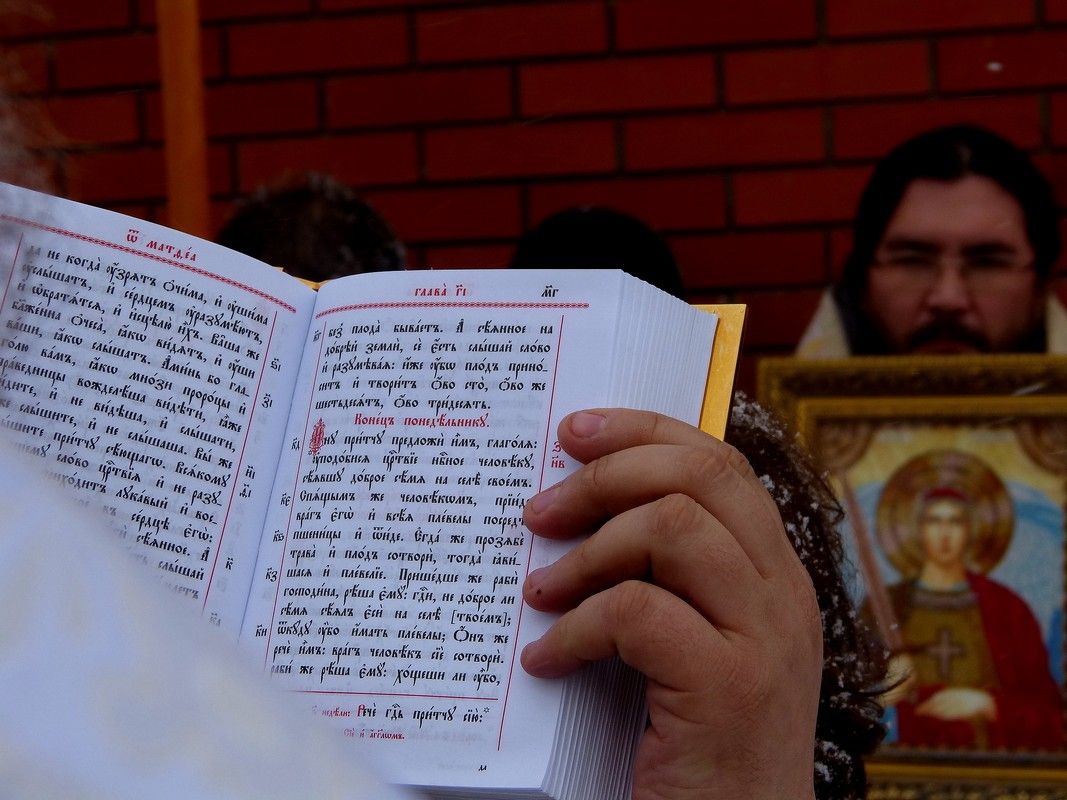 Ѿ МАТѲЕ́А
не когда̀ ᲂу҆́зрѧтъ ѻ҆чи́ма, и҆ ᲂу҆ши́ма
ᲂу҆слы́шатъ, и҆ се́рдцемъ ᲂу҆разꙋмѣ́ютъ,
и҆ ѡ҆братѧ́тсѧ, и҆ и҆сцѣлю̀ и҆̀хъ. Ва̑ша же
бл҃же́нна ѻ҆чеса̀, ꙗ҆́кѡ ви́дѧтъ, и҆ ᲂу҆́ши
ва́ши, ꙗ҆́кѡ слы́шатъ. А҆ми́нь бо гл҃-
го́лю ва́мъ, ꙗ҆́кѡ мно́зи проро́цы и҆
пра́ведницы вожделѣ́ша ви́дѣти, ꙗ҆̀же
ви́дите, и҆ не ви́дѣша, и҆ слы́шати,
же слы́шите, и҆ не слы́шаша. Вы́ же
прі́тчꙋ сѣ́ющагѡ. Всѧ́комꙋ
сло́во црⷭ҇твїѧ и҆ не разꙋ-
лꙋка́вый и҆ вос-
въ се́рдцѣ є҆гѡ̀:
сѣ́ѧнное. А҆
слы́шай
ГЛАВА̀ Г҃І МГ
без̾ плода̀ быва́етъ. А҆ сѣ́ѧнное на
до́брѣй землѝ, сѐ є҆́сть слы́шай сло́во
и҆ разꙋмѣва́ѧ: и҆́же ᲂу҆́бѡ пло́дъ прино́-
ситъ и҆ твори́тъ ѻ҆́во сто̀, ѻ҆́во же
шестьдесѧ́тъ, ѻ҆́во три́десѧть.
Коне́цъ понедѣ́льникꙋ.
И҆́нꙋ при́тчꙋ предложѝ и҆̀мъ, глаго́лѧ:
ᲂу҆подо́бисѧ црⷭ҇твїе нбⷭ҇ное человѣ́кꙋ,
сѣ́ѧвшꙋ до́брое сѣ́мѧ на селѣ̀ свое́мъ.
Спѧ́щымъ же человѣ́кѡмъ, прїи́де
вра́гъ є҆гѡ̀ и҆ всѣ́ѧ пле́велы посредѣ̀
пшени́цы и҆ ѿи́де. Є҆гда́ же прозѧбѐ
трава̀ и҆ пло́дъ сотворѝ, тогда̀ ꙗ҆ви́-
шасѧ и҆ пле́велїе. Прише́дше же рабѝ
господи́на, рѣ́ша є҆мꙋ̀: гдⷭ҇и, не до́брое ли
сѣ́мѧ сѣ́ѧлъ є҆сѝ на селѣ̀ [твое́мъ];
ѿкꙋ́дꙋ ᲂу҆̀бо и҆́мать пле́велы; Ѻ҆́нъ же
речѐ и҆̀мъ: вра́гъ человѣ́къ сїѐ сотворѝ.
рабѝ же рѣ́ша є҆мꙋ̀: хо́щеши ли ᲂу҆̀бо,
недѣ́ли: Речѐ гдⷭ҇ь при́тчꙋ сїю̀: